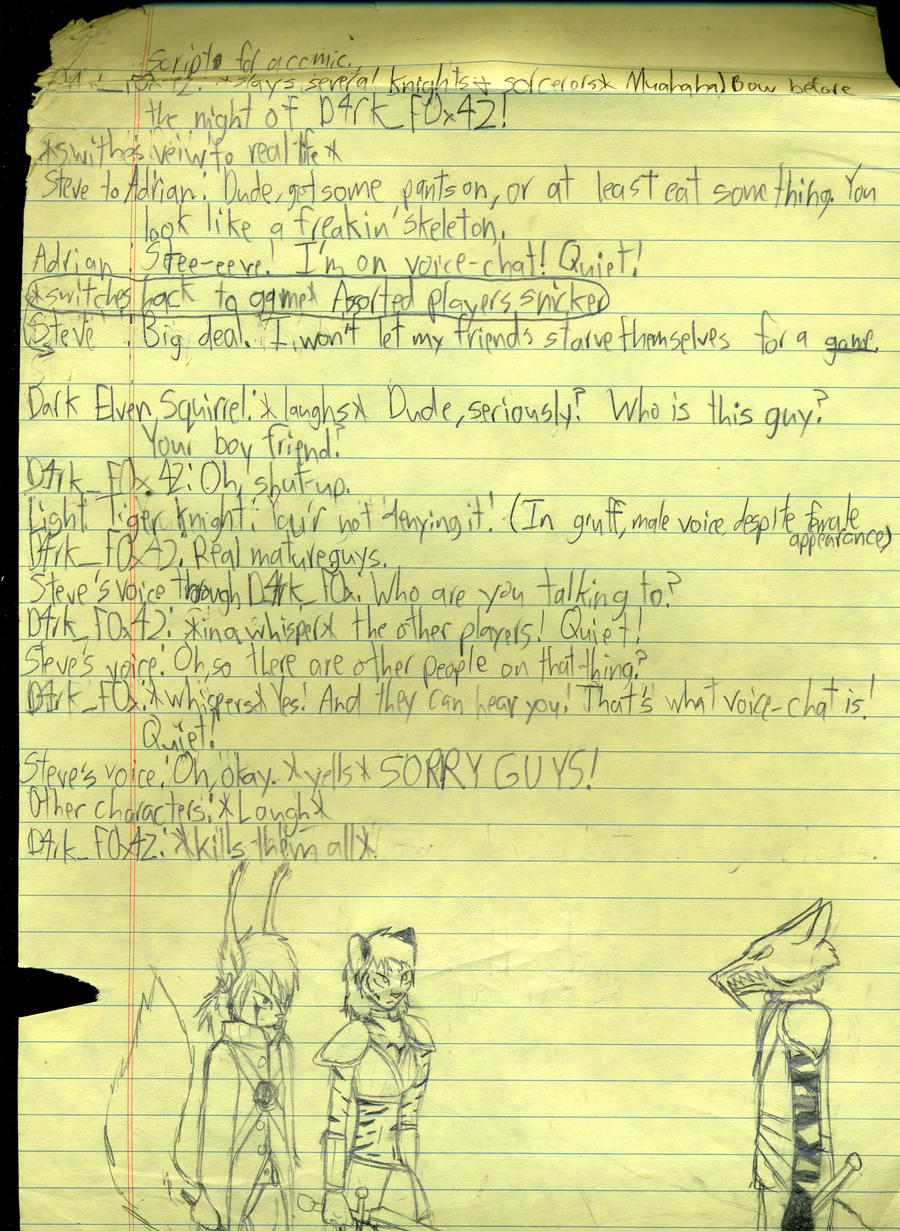 Scripts for a comic.
D4rk_f0x42: *slays several knights + sorcerors* Muahaha! Bow before
the might of D4rk_f0x42!
*swithes veiw to real life*
Steve to Adrian: Dude, get some pants on, or at least eat something. You
look like a freakin' skeleton.
Adrian: Stee-eeve! I'm on voice-chat! Quiet!
*switches back to game* Assorted players snicker
Steve: Big deal. I won't let my friends starve themselves for a game.
Dark Elven Squirrel: *laughs* Dude, seriously? Who is this guy?
Your boy friend?
D4rk_f0x42: Oh, shut-up.
Light Tiger Knight: You'r not denying it! (In gruff, male voice despite female
appearance)
D4rk_f0x42: Real mature guys.
Steve's voice through D4rk_f0x: Who are you talking to?
D4rk_f0x42: *in a whisper* the other players! Quiet!
Steve's voice: Oh, so there are other people on that thing?
D4rk_f0x: *whispers* Yes! And they can hear you! That's what voice-chat is!
Quiet!
Steve's voice: Oh, okay. *yells* SORRY GUYS!
Other characters: *Laugh*
D4rk_f0x42: *kills them all*